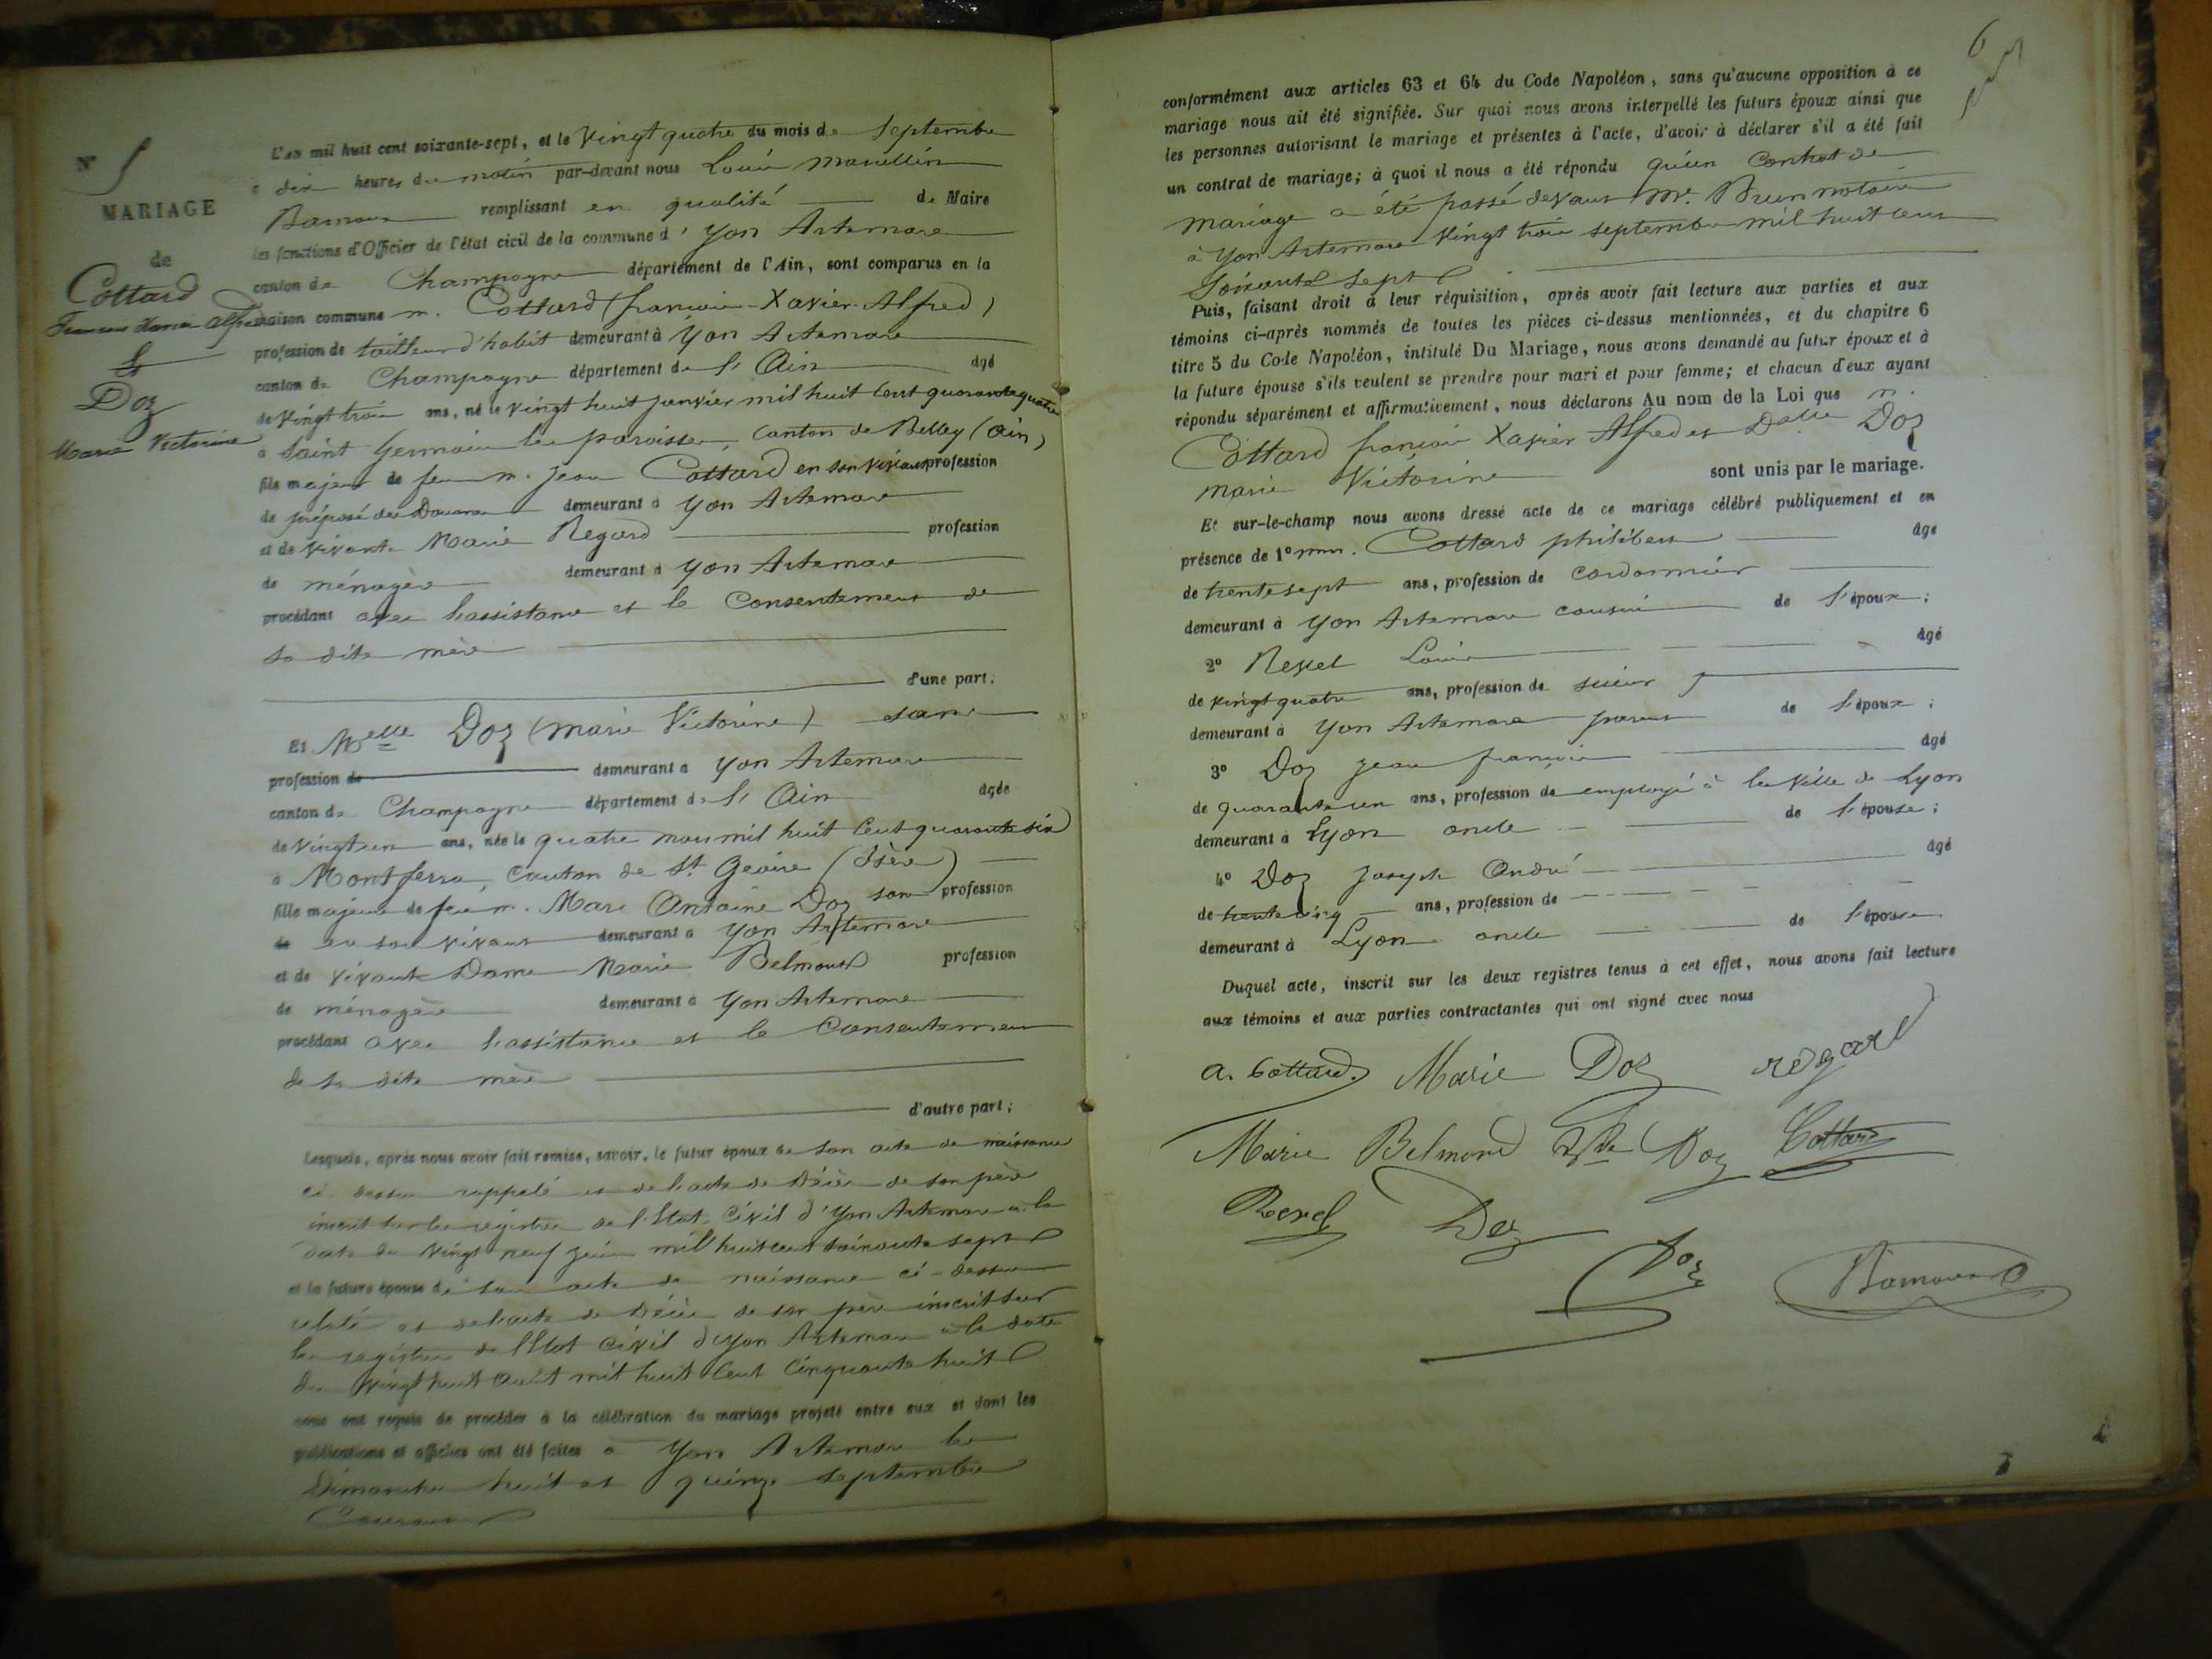 N° 5
MARIAGE
de
Cottard
François Xavier Alfred
&
Doz
Marie Victorine
L'an mil huit cent soixante-sept, et le vingt quatre du mois de Septembre
à dix heures du matin par-devant nous Louis Marcellin
remplissant en qualité de Maire
les fonctions d'Officier de l'état civil de la commune d'Yon Artemare
canton de Champagne département de l'Ain, sont comparus en la
maison commune m. Cottard (françois-Xavier-Alfred)
profession de tailleur d'habit demeurant à Yon Artemare
canton de Champagne département de l'Ain âgé
de vingt trois ans, né le vingt huit janvier mil huit cent quarante quatre
à Saint Germain les paroisses, canton de Belley (Ain)
fils majeur de feu m. Jean Cottard en son vivant profession
de préposé des Douanes demeurant à Yon Artemare
et de vivante Marie Regard profession
de ménagère demeurant à Yon Artemare
procédant avec l'assistance et le consentement de
sa dite mère
d'une part;
Et Melle Doz (marie Victorine) sans
profession de demeurant à Yon Artemare
canton de Champagne département de l'Ain âgée
de vingt un ans, née le quatre mars mil huit cent quarante six
à Montferra, canton de St Geoire (Isère)
fille majeure de feu m. Marc Antoine Doz sans profession
de en son vivant demeurant à Yon Artemare
et de vivante Dame Marie Belmond profession
de ménagère demeurant à Yon Artemare
procédant avec l'assistance et le consentement
de sa dite mère
d'autre part;
Lesquels, après nous avoir fait remise, savoir, le futur époux de son acte de naissance
ci-dessus rappelé et de l'acte de décès de son père
inscrit sur les registres de l'Etat-Civil d'Yon Artemare à la
date du vingt neuf juin mil huit cent soixante sept
et la future épouse de son acte de naissance ci-dessus
relaté et de l'acte de décès de son père inscrit sur
les registres de l'Etat civil d'Yon Artemare à la date
du vingt huit août mil huit cent cinquante huit
nous ont requis de procéder à la célébration du mariage projeté entre eux et dont les
publications et affiches ont été faites à Yon Artemare les
Dimanches huit et quinze septembre
Courant
6
conformément aux articles 63 et 64 du Code Napoléon, sans qu'aucune opposition à ce
mariage nous ait été signifiée. Sur quoi nous avons interpellé les futurs époux ainsi que
les personnes autorisant le mariage et présentes à l'acte, d'avoir à déclarer s'il a été fait
un contrat de mariage; à quoi il nous a été répondu qu'un contrat de
mariage a été passé devant Me. Brun notaire
à Yon Artemare vingt trois septembre mil huit cent
soixante sept
Puis, faisant droit à leur réquisition, après avoir fait lecture aux parties et aux
témoins ci-après nommés de toutes les pièces ci-dessus mentionnées, et du chapitre 6
titre 5 du Code Napoléon, intitulé Du Mariage, nous avons demandé au futur époux et à
la future épouse s'ils veulent se prendre pour mari et pour femme; et chacun d'eux ayant
répondu séparément et affirmativement, nous déclarons Au nom de la Loi que m.
Cottard françois Xavier Alfred et Delle Doz
marie Victorine sont unis par le mariage.
Et sur-le-champ nous avons dressé acte de ce mariage célébré publiquement et en
présence de 1° mm. Cottard philibert âgé
de trente sept ans, profession de cordonnier
demeurant à Yon Artemare cousin de l'époux;
2° Revel Louis âgé
de vingt quatre ans, profession de scieur
demeurant à Yon Artemare parent de l'époux;
3° Doz jean françois âgé
de quarante un ans, profession de employé à la ville de Lyon
demeurant à Lyon oncle de l'épouse;
4° Doz joseph André âgé
de trente cinq ans, profession de
demeurant à Lyon oncle de l'épouse.
Duquel acte, inscrit sur les deux registres tenus à cet effet, nous avons fait lecture
aux témoins et aux parties contractantes qui ont signé avec nous
a. Cottard. Marie Doz regard
Marie Belmond Vve Doz Cottard
Revel Doz
Doz